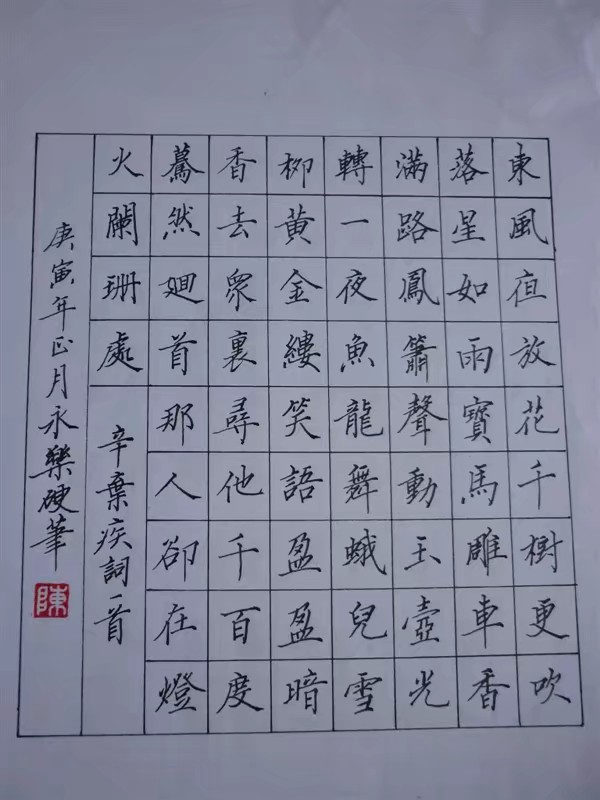 東風亱放花千樹更吹
落星如雨寶馬雕車香
滿路鳳簫聲動玉壺光
轉一夜魚龍舞蛾兒雪
柳黃金縷笑語盈盈暗
香去衆裏尋他千百度
驀然廻首那人卻在燈
火闌珊處
辛棄疾詞一首
庚寅年正月永樂硬筆
陳